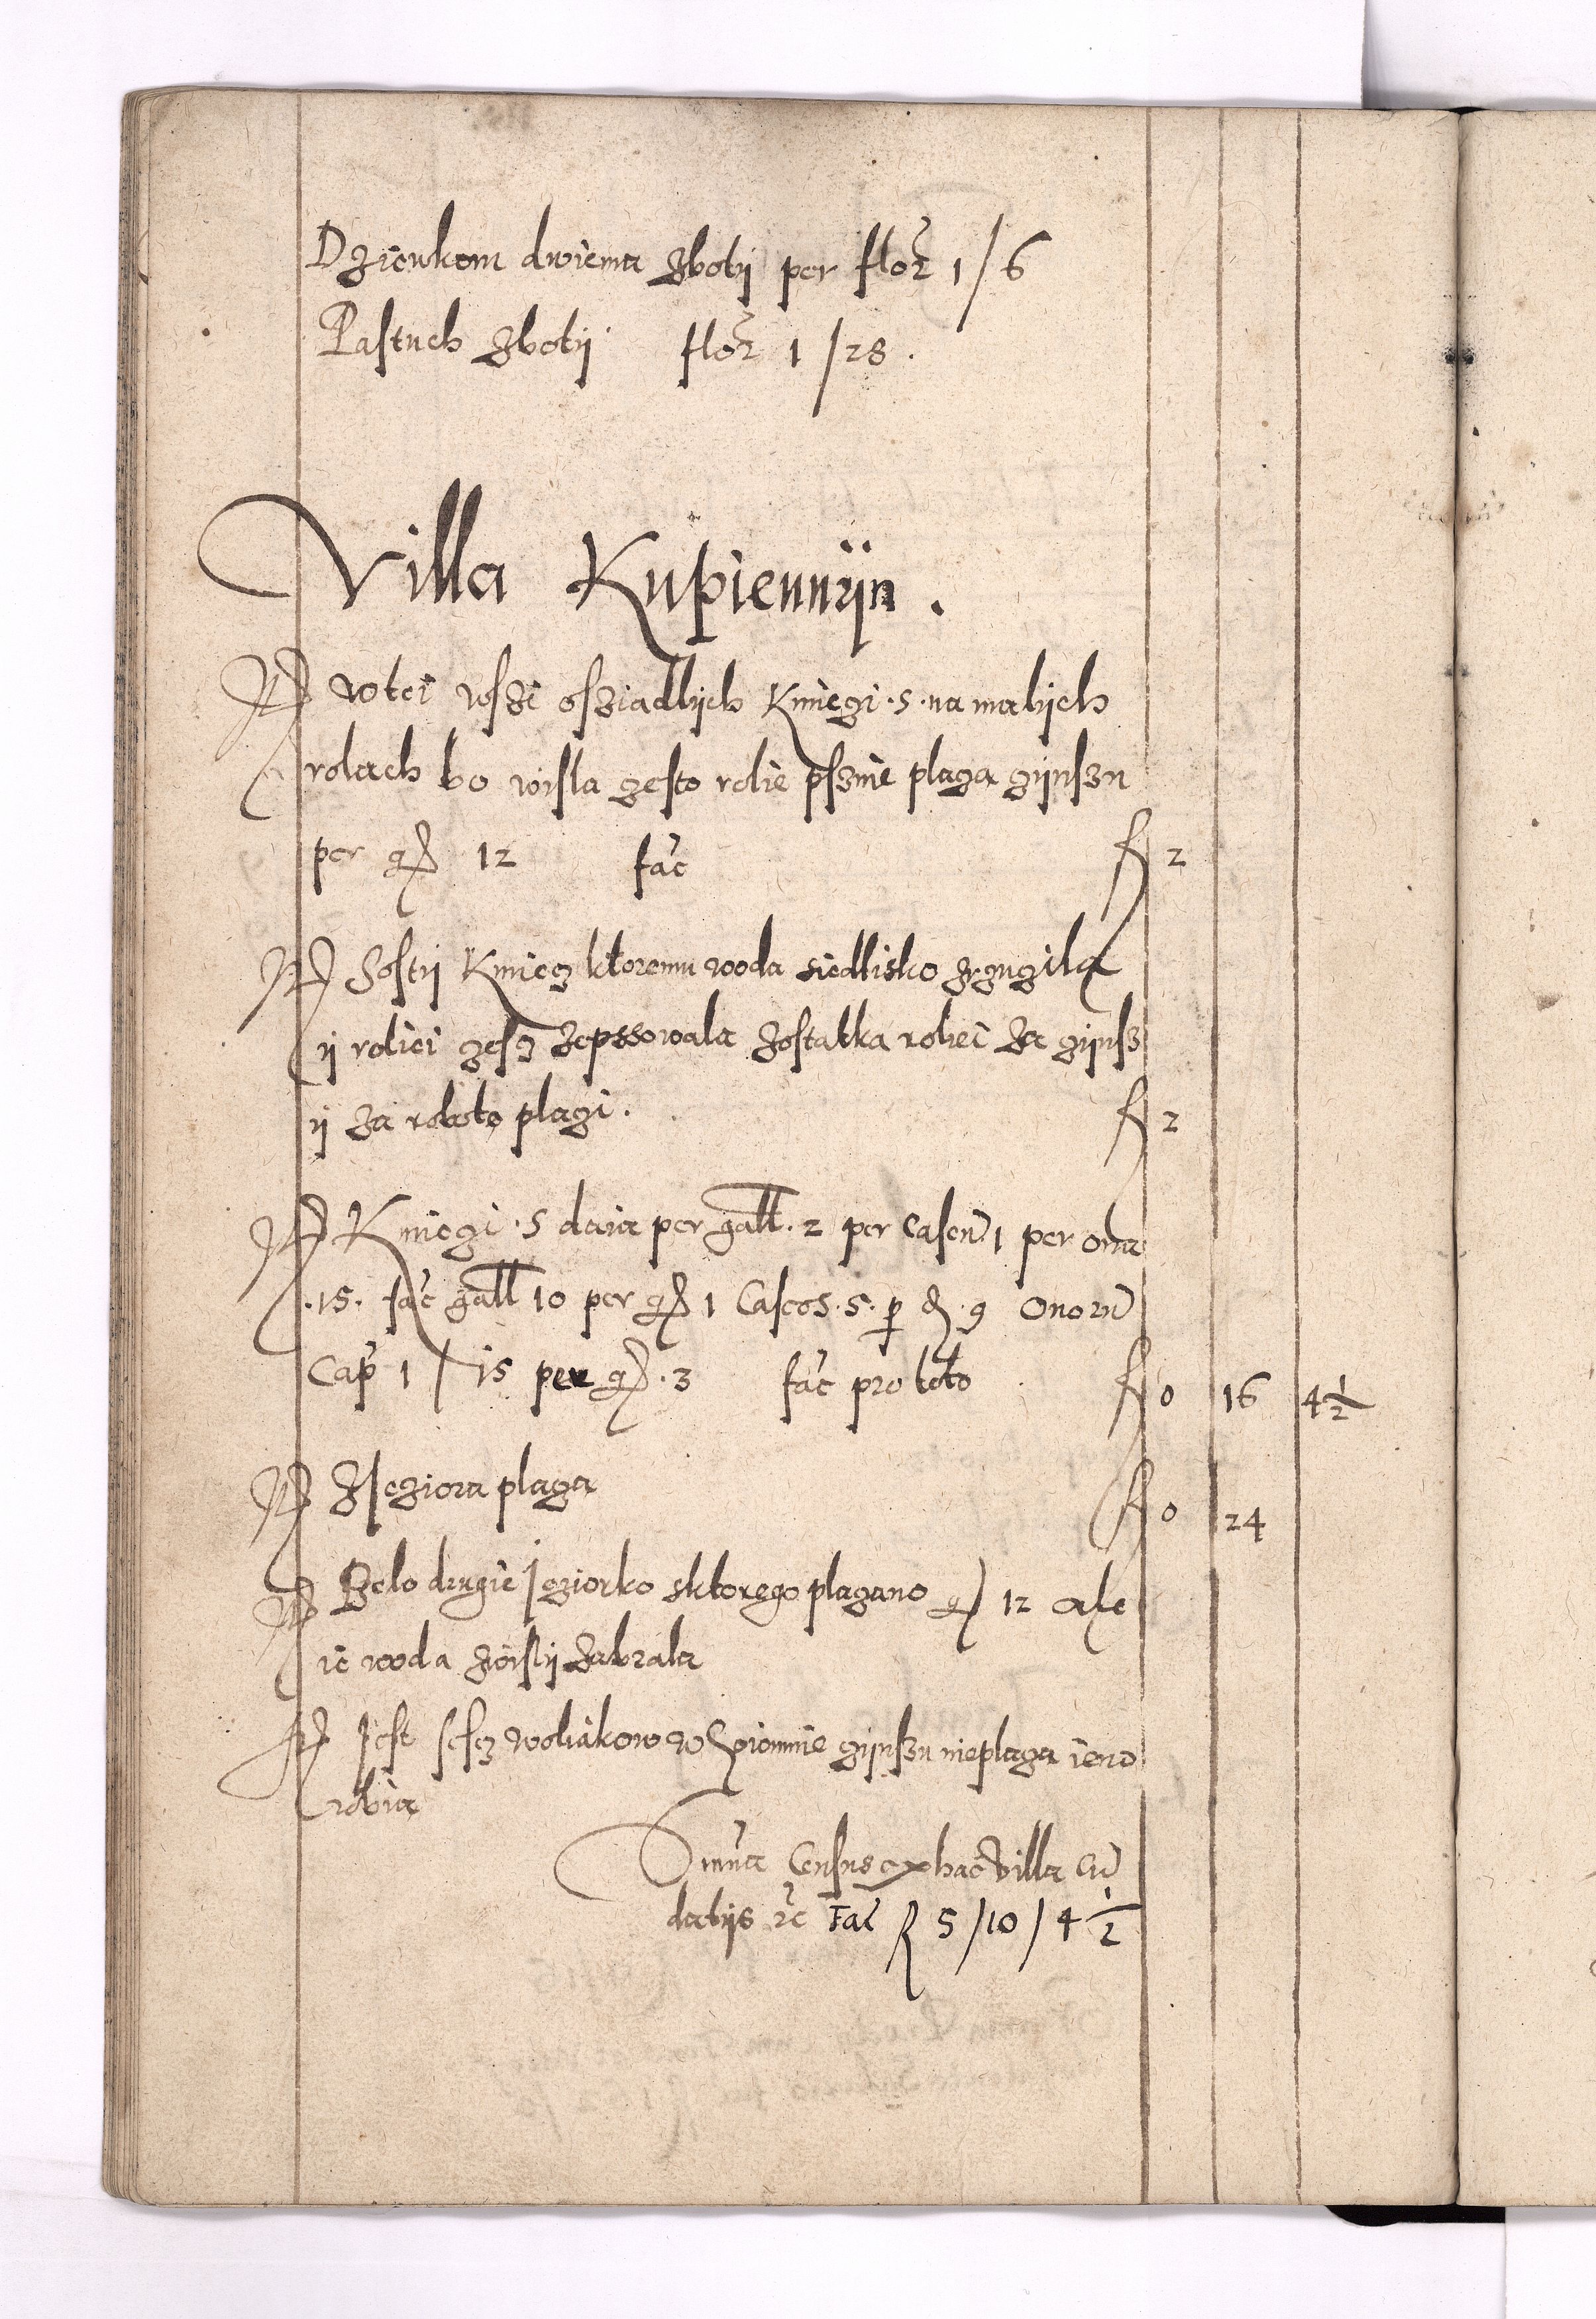 Dzieukom dwiema zboty per flor 1/6
Pastuch zboty flor 1/28.
Villa Kupiennyn.
wtei wszi osziadlych Kmiegi .5. na malych
rolach bo wisla gesto rolie pszuie plaga gijnszu
per gr 12 fac f 2
Sosty Kmiecz ktoremu woda siedlisko zrzugila
y roliei zesz zepssowala zostatka roliei za gijnsz
y za roboto plagi. f 2
Kmiegi .5 daia per gall. 2 per Caseu 1 per oua
.15. fac gall 10 per gr 1 Caseos .5. p d .9 Ouoru
Cap 1 / 15 per gr .3 fac pro toto f 0 16 4 1/2
Z Jeziora plaga f 0 24
Belo drugie Jeziorko sktorego plagano gr 12 ale
ie woda zwisly zabrala
Jest sesz woliakow w gijnszu nieplaga ieno
robia
Suma Census ex hac villa cu
datijs rc Fac f 5/10/4 1/2